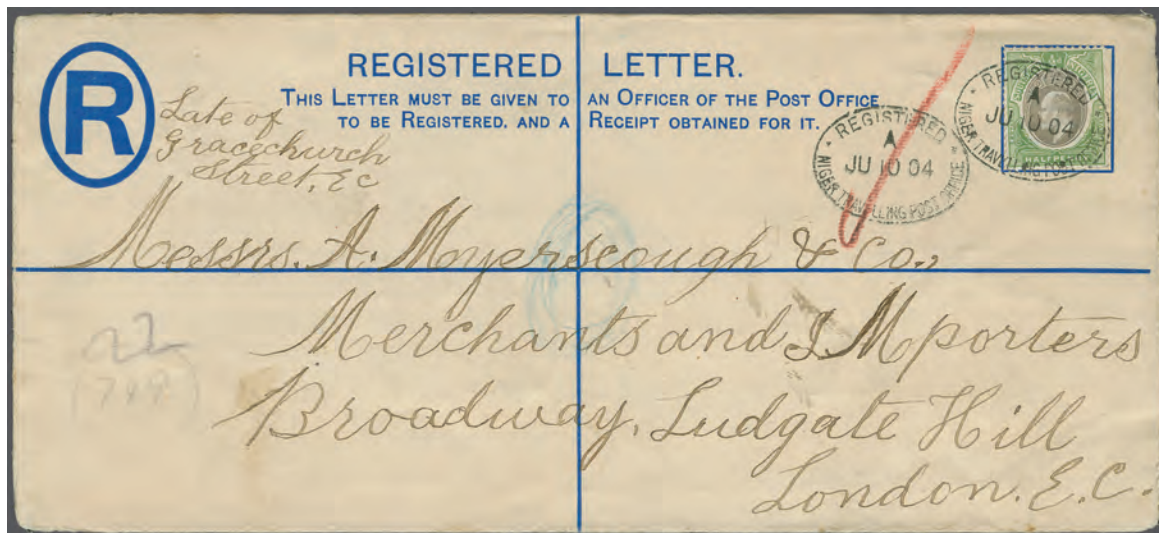 R
REGISTERED LETTER.
THIS LETTER MUST BE GIVEN TO AN OFFICER OF THE POST OFFICE
TO BE REGISTERED, AND A RECEIPT OBTAINED FOR IT.
Late of
Gracechurch
Street, EC
REGISTERED
A
JU 10 04
NIGER TRAVELLING POST OFFICE
REGISTERED
A
JU 10 04
NIGER TRAVELLING POST OFFICE
HALFPENNY
Messrs. A. Myerscough & Co.,
Merchants and IMporters
Broadway, Ludgate Hill
London. E.C.
22